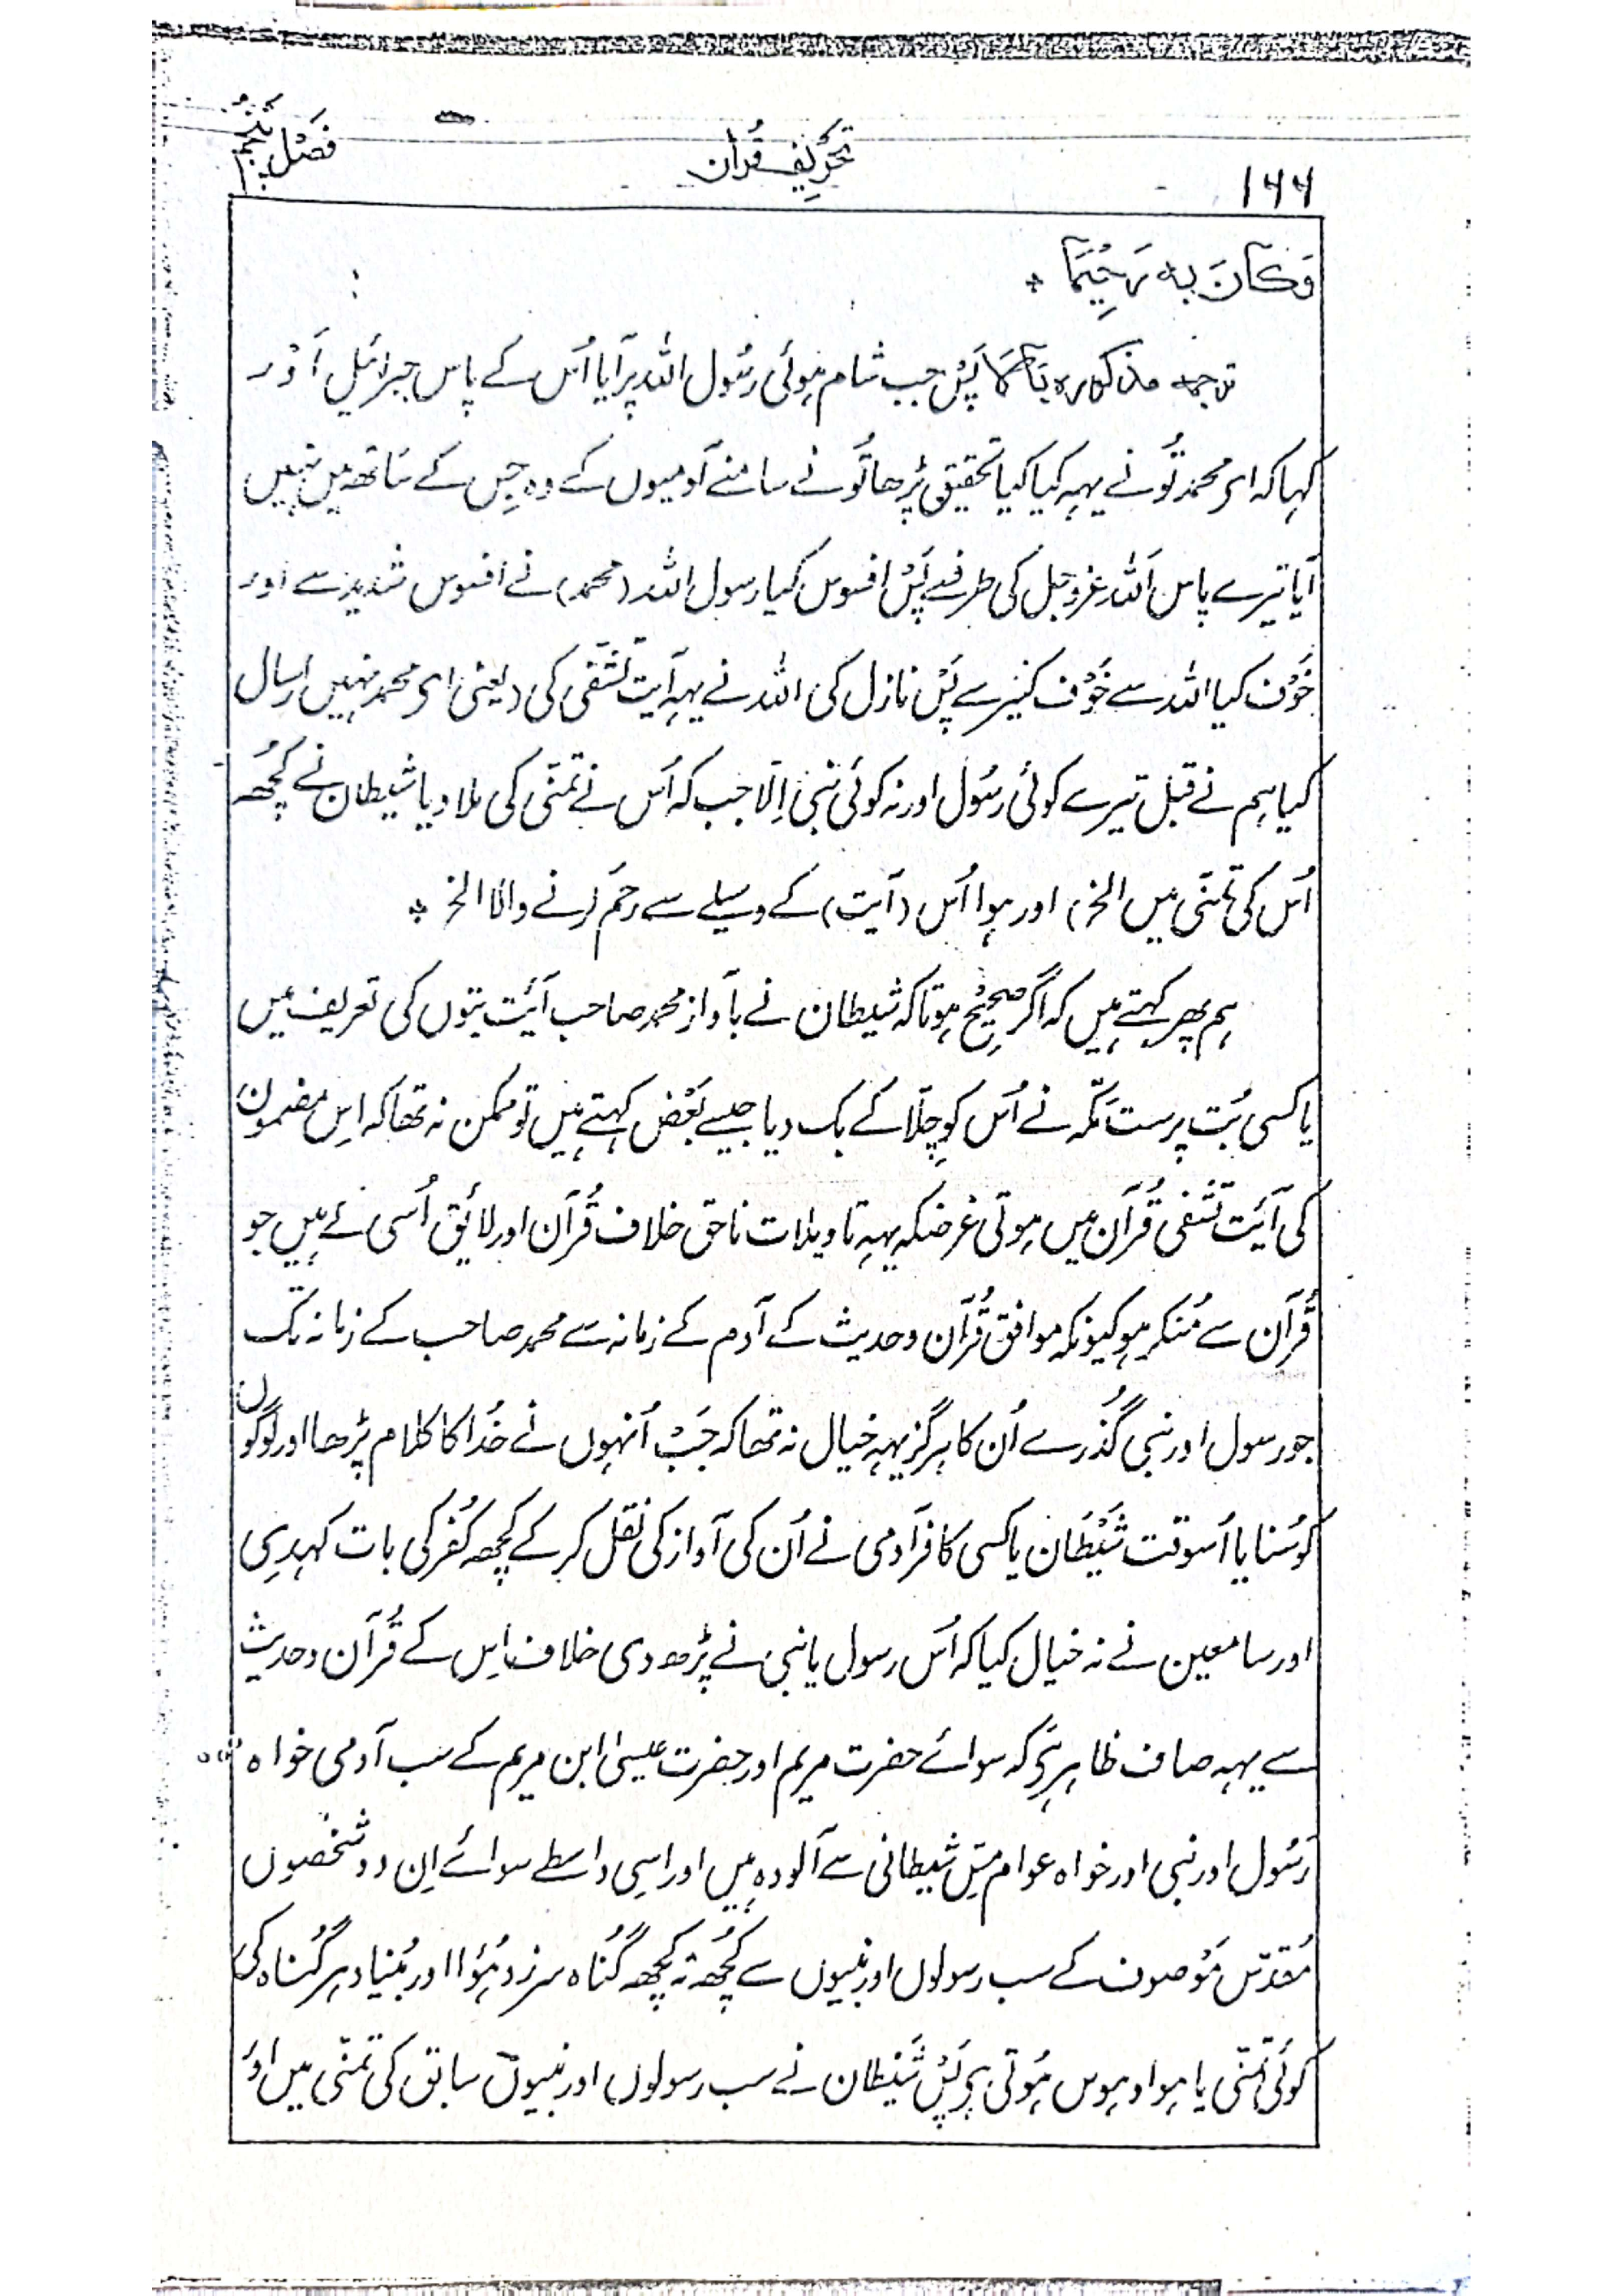 ۱۶۶ تحریف قُرآن فصل پنجم
وَكَانَ بِه رَحِيْمًا *
ترجمہ مذکورہ بالا پس جب شام ہوئی رسُول اللہ پر آیا اُس کے پاس جبرائیل اَوْر
کہا کہ ای محمد تُو نے یہہ کیا کیا تحقیق پڑھا تُو نے سامنے آدمیوں کے وہ جِس کے ساتھ میں نہیں
آیا تیرے پاس اَللہ عزوجل کی طرف سے پَس افسوس کیا رسول اللہ (محمد) نے افسوس شدید سے اور
خَوْف کیا اللہ سے خَوْف کثیر سے پَس نازل کی اللہ نے یہہ آیت تَشَفّی کی (یعنی ای محمد نہیں ارسال
کیا ہم نے قبل تیرے کوئی رسُول اور نہ کوئی نبی اِلّا جب کہ اُس نے تمنّی کی ملا دیا شیطان نے کُچھ
اُس کی تمنّی میں الخ) اور ہوا اُس (آیت) کے وسیلے سے رحَم کرنے والا الخ *
ہم پھر کہتے ہیں کہ اگر صحیح ہوتا کہ شیطان نے بآواز محمد صاحب آیَت بتوں کی تعریف میں
یا کسی بُت پرست مکّہ نے اُس کو چِلّا کے بک دیا جیسے بَعْض کہتے ہیں تو ممکن نہ تھا کہ اِس مضمون
کی آیَت تشفی قُرآن میں ہوتی غرضکہ یہہ تاویلات ناحق خلاف قُرآن اور لائِق اُسی کے ہیں جو
قُرآن سے مُنکر ہو کیونکہ موافق قُرآن و حدیث کے آدم کے زمانہ سے محمد صاحب کے زمانہ تک
جو رسول اور نبی گُذرے اُن کا ہرگز یہہ خیال نہ تھا کہ جَب اُنہوں نے خُدا کا کلام پڑھا اور لوگوں
کو سُنایا اُسوقت شَیْطَان یا کسی کافر آدمی نے اُن کی آواز کی نقل کر کے کُچھ کُفر کی بات کہدی
اور سامعین نے نہ خیال کیا کہ اُس رسول یا نبی نے پڑھ دی خلاف اِس کے قُرآن و حدیث
سے یہہ صاف ظاہر ہَی کہ سوائے حضرت مریم اور حضرت عیسیٰ ابن مریم کے سب آدمی خواہ
رَسُول اور نبی اور خواہ عوام مسّ شیطانی سے آلودہ ہیں اور اِسی واسطے سوائے اِن دو شخصوں
مُقدّس مَوْصوف کے سب رسولوں اور نبیوں سے کُچھ نہ کُچھ گُناہ سرزد ہُوا اور بُنیاد ہر گُناہ کی
کوئی تمنّی یا ہوا و ہوس ہُوتی ہَی پَس شَیْطان نے سب رسولوں اور نبیوں سابق کی تمنّی میں اَوْ